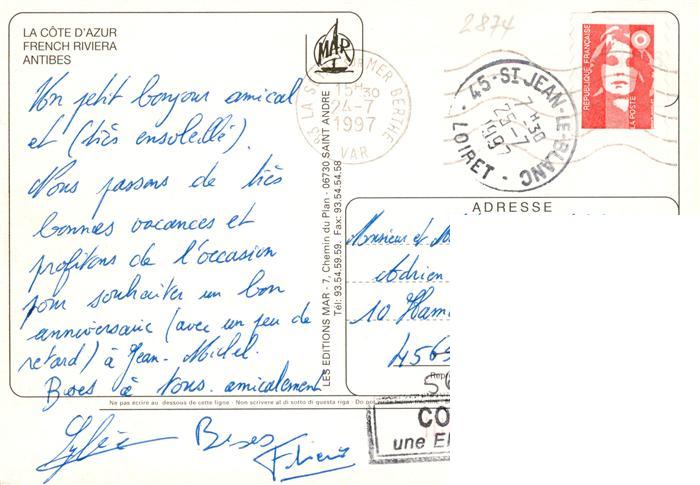 LA CÔTE D'AZUR
FRENCH RIVIERA
ANTIBES
MAR
2874
83 LA S MER BERTHE
15H30
24-7
1997
VAR
45-ST JEAN-LE-BLANC
7H30
25-7
1997
LOIRET
REPUBLIQUE FRANÇAISE
LA POSTE
Un petit bonjour amical
et (très ensoleillé).
Nous passons de très
bonnes vacances et
profitons de l'occasion
pour souhaiter un bon
anniversaire (avec un peu de
retard) à Jean-Michel.
Bises à tous. amicalement
Sylvie Bises
LES EDITIONS MAR - 7, Chemin du Plan - 06730 SAINT ANDRE
Tél: 93.54.59.59. Fax: 93.54.54.58
ADRESSE
Monsieur et M
Adrien
10 Ham
4565
Ne pas écrire au dessous de cette ligne - Non scrivere al di sotto di questa riga - Do not
CO
une E